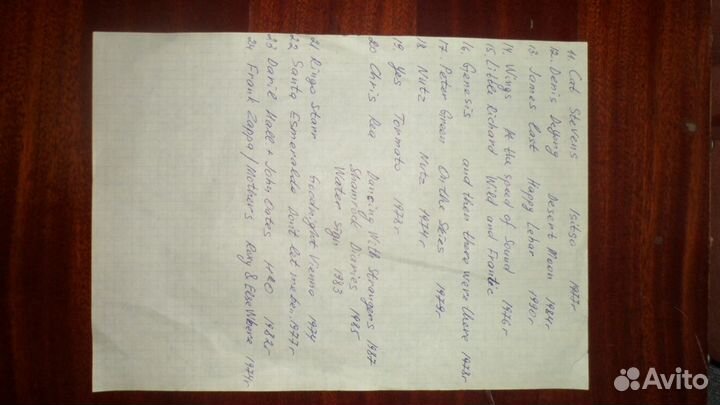 11. Cat Stevens Isitso 1977г
12. Denis DeYung Desert Moon 1984г
13 James Last Happy Lehar 1990г
14. Wings At the speed of Sound 1976г
15 Little Richard Wild and Frantic
16 Genesis and then there were there 1978г
17. Peter Green On the Skies 1979г
18 Nutz Nutz 1974г
19. Yes Tormato 1978г
20 Chris Rea Dancing With Strangers 1987
Shamrock Diaries 1985
Water Sign 1983
21 Ringo Starr Goodnight Vienna 1974
22 Santa Esmeralda Don't let me be.. 1977г
23 Daril Hall + John Oates H2O 1982г
24 Frank Zappa/Mothers Roxy & ElseWhere 1974г
Avito